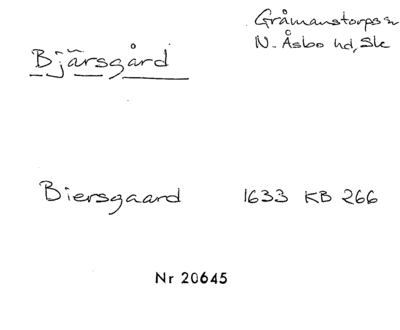 Gråmanstorps sn
N. Åsbo hd, Sk
Bjärsgård
Biersgaard 1633 KB 266
Nr 20645